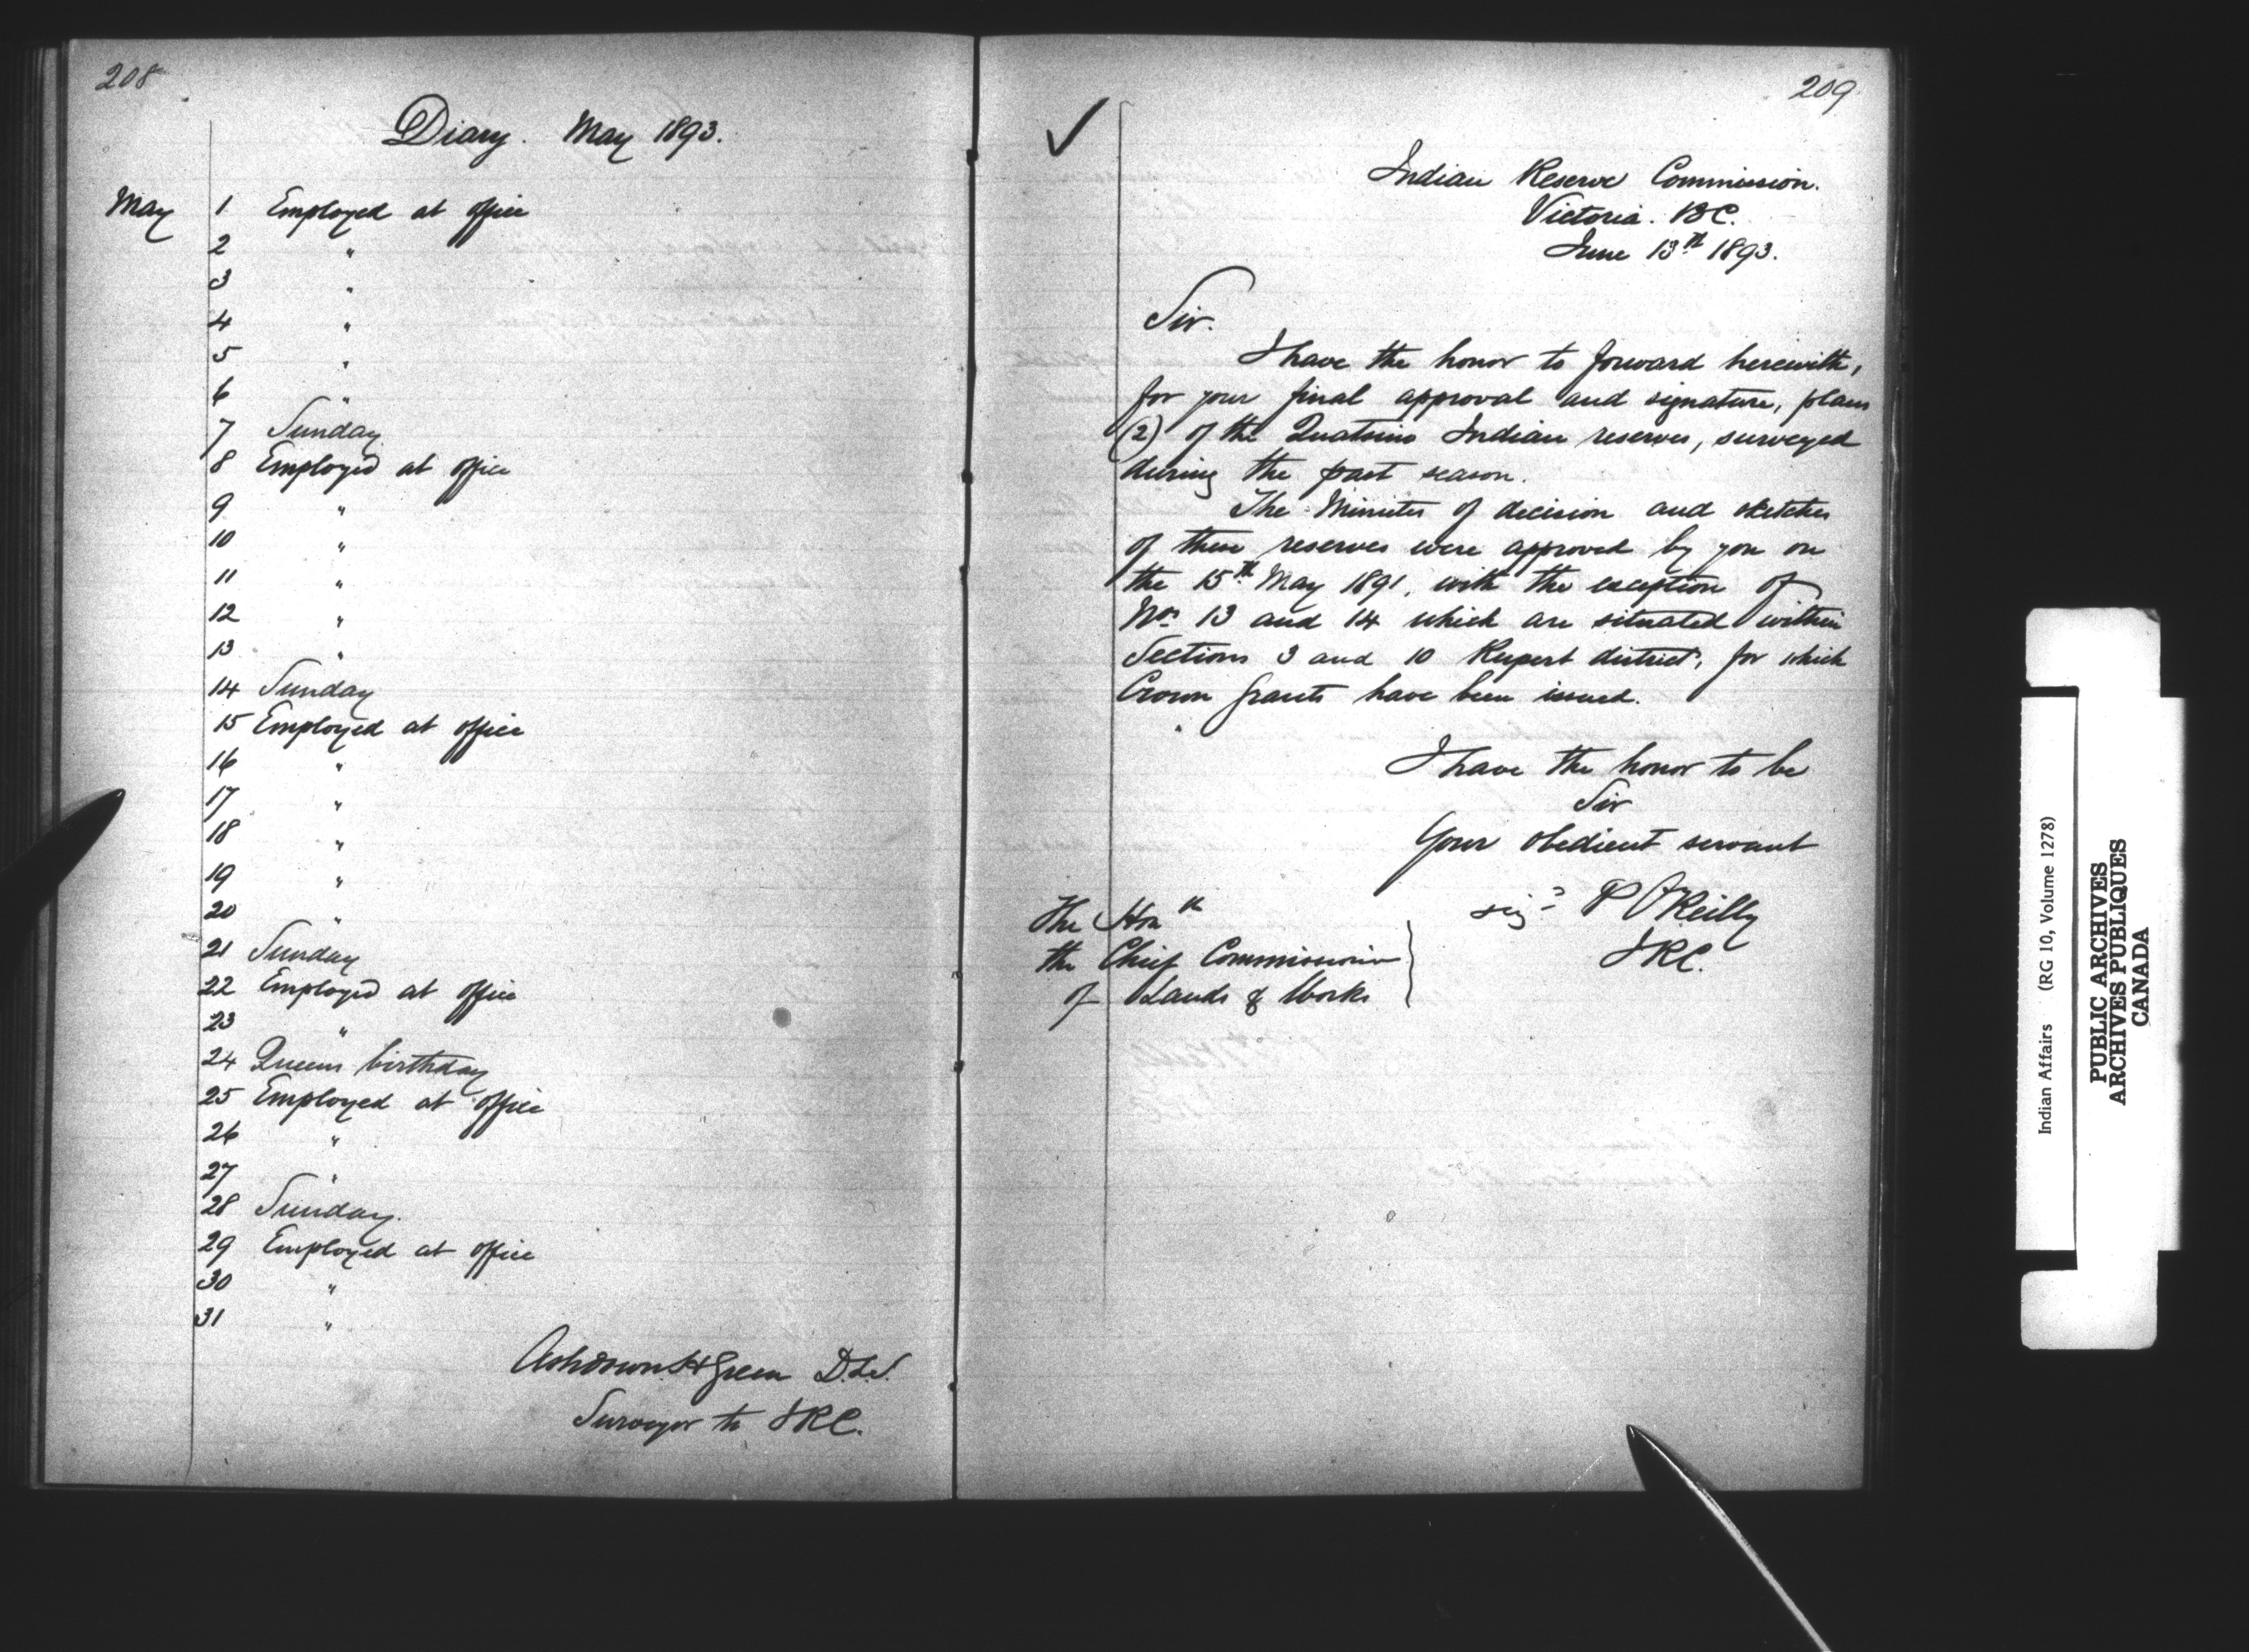 208
Diary. May 1893.
May 1 Employed at office
2 "
3 "
4 "
5 "
6 "
7 Sunday
8 Employed at office
9 "
10 "
11 "
12 "
13 "
14 Sunday
15 Employed at office
16 "
17 "
18 "
19 "
20 "
21 Sunday
22 Employed at office
23 "
24 Queens birthday
25 Employed at office
26 "
27 "
28 Sunday.
29 Employed at office
30 "
31 "
Ashdown H Green D.L.S.
Surveyor to I.R.C.
209
✓
Indian Reserve Commission.
Victoria. B.C.
June 13th 1893.
Sir.
I have the honor to forward herewith,
for your final approval and signature, plans
(2) of the Quatsino Indian reserves, surveyed
during the past season.
The Minutes of decision and sketches
of these reserves were approved by you on
the 15th May 1891, with the exception of
Nos 13 and 14 which are situated within
Sections 3 and 10 Rupert district, for which
Crown grants have been issued.
I have the honor to be
Sir
Your obedient servant
sigd P O'Reilly
I.R.C.
The Honble
the Chief Commissioner
of Lands & Works
Indian Affairs (RG 10, Volume 1278)
PUBLIC ARCHIVES
ARCHIVES PUBLIQUES
CANADA